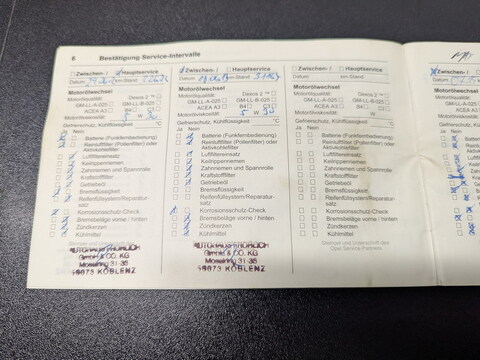 6 Bestätigung Service-Intervalle
Zwischen- / Hauptservice
Datum km-Stand
Motorölwechsel
Motorölqualität: Dexos 2 ™
GM-LL-A-025 GM-LL-B-025
ACEA A3 B4 C3
Motorölviskosität: 5 W 30
Gefrierschutz, Kühlflüssigkeit °C
Ja Nein
Batterie (Funkfernbedienung)
Reinluftfilter (Pollenfilter) oder
Aktivkohlefilter
Luftfiltereinsatz
Keilrippenriemen
Zahnriemen und Spannrolle
Kraftstofffilter
Getriebeöl
Bremsflüssigkeit
Reifenfüllsystem/Reparatur-
satz
Korrosionsschutz-Check
Bremsbeläge vorne / hinten
Zündkerzen
Kühlmittel
AUTOHAUS FRÖHLICH
GmbH & CO. KG
Moselring 31-35
56073 KOBLENZ
Zwischen- / Hauptservice
Datum km-Stand
Motorölwechsel
Motorölqualität: Dexos 2 ™
GM-LL-A-025 GM-LL-B-025
ACEA A3 B4 C3
Motorölviskosität: 5 W 30
Gefrierschutz, Kühlflüssigkeit °C
Ja Nein
Batterie (Funkfernbedienung)
Reinluftfilter (Pollenfilter) oder
Aktivkohlefilter
Luftfiltereinsatz
Keilrippenriemen
Zahnriemen und Spannrolle
Kraftstofffilter
Getriebeöl
Bremsflüssigkeit
Reifenfüllsystem/Reparatur-
satz
Korrosionsschutz-Check
Bremsbeläge vorne / hinten
Zündkerzen
Kühlmittel
AUTOHAUS FRÖHLICH
GmbH & CO. KG
Moselring 31-35
56073 KOBLENZ
Zwischen- / Hauptservice
Datum km-Stand
Motorölwechsel
Motorölqualität: Dexos 2 ™
GM-LL-A-025 GM-LL-B-025
ACEA A3 B4 C3
Motorölviskosität: W
Gefrierschutz, Kühlflüssigkeit °C
Ja Nein
Batterie (Funkfernbedienung)
Reinluftfilter (Pollenfilter) oder
Aktivkohlefilter
Luftfiltereinsatz
Keilrippenriemen
Zahnriemen und Spannrolle
Kraftstofffilter
Getriebeöl
Bremsflüssigkeit
Reifenfüllsystem/Reparatur-
satz
Korrosionsschutz-Check
Bremsbeläge vorne / hinten
Zündkerzen
Kühlmittel
Stempel und Unterschrift des
Opel Service Partners
Zwischen-
Datum
Motorölwechsel
Motorölqualität:
GM-LL-A
ACEA
Motorölviskosität
Gefrierschutz
Ja Nein